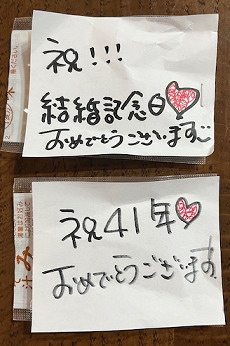 祝!!!
結婚記念日
おめでとうございます
祝41年
おめでとうございます